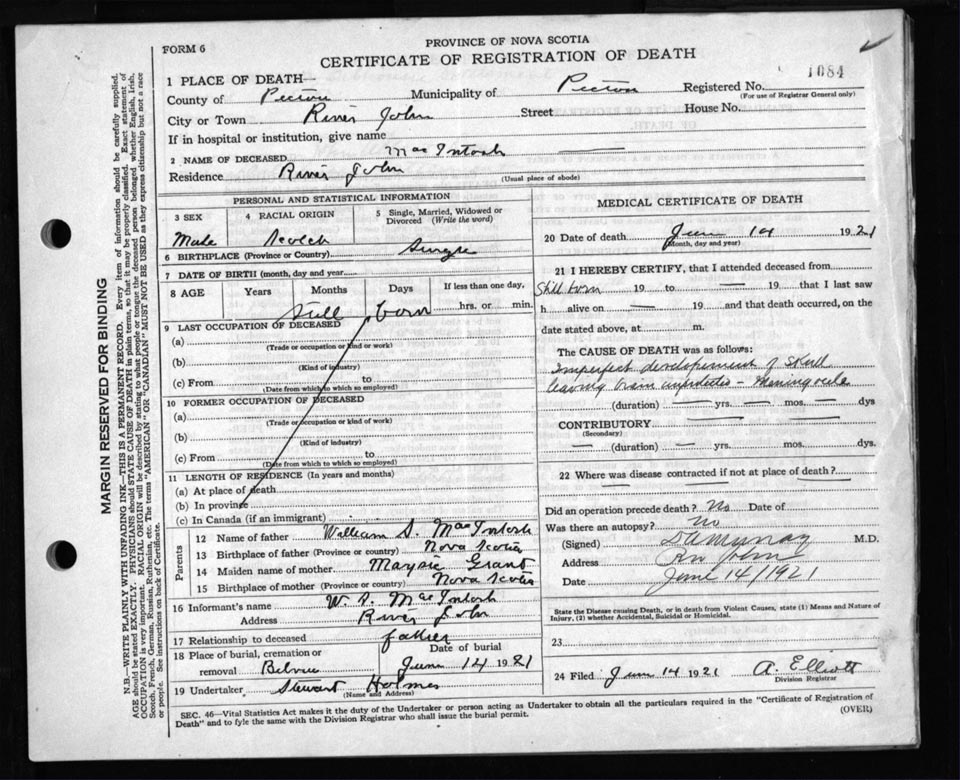 PROVINCE OF NOVA SCOTIA
FORM 6
CERTIFICATE OF REGISTRATION OF DEATH
1084
1 PLACE OF DEATH—
County of Pictou Municipality of Pictou Registered No.
(For use of Registrar General only)
City or Town River John Street House No.
If in hospital or institution, give name
2 NAME OF DECEASED MacIntosh
Residence River John
(Usual place of abode)
PERSONAL AND STATISTICAL INFORMATION
3 SEX 4 RACIAL ORIGIN 5 Single, Married, Widowed or Divorced (Write the word)
Male Scotch Single
6 BIRTHPLACE (Province or Country)
7 DATE OF BIRTH (month, day and year)
8 AGE Years Months Days If less than one day,
Still born hrs. or min.
9 LAST OCCUPATION OF DECEASED
(a)
(Trade or occupation or kind or work)
(b)
(Kind of industry)
(c) From to
(Date from which to which so employed)
10 FORMER OCCUPATION OF DECEASED
(a)
(Trade or occupation or kind of work)
(b)
(Kind of industry)
(c) From to
(Date from which to which so employed)
11 LENGTH OF RESIDENCE (In years and months)
(a) At place of death
(b) In province
(c) In Canada (if an immigrant)
Parents
12 Name of father William S. MacIntosh
13 Birthplace of father (Province or country) Nova Scotia
14 Maiden name of mother Maysie Grant
15 Birthplace of mother (Province or country) Nova Scotia
16 Informant's name W. S. MacIntosh
Address River John
17 Relationship to deceased father
18 Place of burial, cremation or removal Date of burial
June 14 1921
19 Undertaker Stewart Holmes
(Name and Address)
MEDICAL CERTIFICATE OF DEATH
20 Date of death June 14 1921
(Month, day and year)
21 I HEREBY CERTIFY, that I attended deceased from
Still born 19 to — 19 that I last saw
h alive on — 19 and that death occurred, on the
date stated above, at m.
The CAUSE OF DEATH was as follows:
Imperfect development of Skull
leaving brain — Meningocele
(duration) — yrs. — mos. — dys
CONTRIBUTORY
(Secondary)
(duration) yrs. mos. dys.
22 Where was disease contracted if not at place of death?
Did an operation precede death? No Date of
Was there an autopsy? No
(Signed) M.D.
Address Riv John
Date June 14/1921
State the Disease causing Death, or in death from Violent Causes, state (1) Means and Nature of
Injury, (2) whether Accidental, Suicidal or Homicidal.
23
24 Filed June 14 1921 A. Elliott
Division Registrar
SEC. 46—Vital Statistics Act makes it the duty of the Undertaker or person acting as Undertaker to obtain all the particulars required in the "Certificate of Registration of
Death" and to fyle the same with the Division Registrar who shall issue the burial permit. (OVER)
MARGIN RESERVED FOR BINDING
N.B.—WRITE PLAINLY WITH UNFADING INK—THIS IS A PERMANENT RECORD. Every item of information should be carefully supplied.
AGE should be stated EXACTLY. PHYSICIANS should STATE CAUSE OF DEATH in plain terms, so that it may be properly classified. Exact statement of
OCCUPATION is very important. RACIAL ORIGIN will be described by stating to what people or tongue the deceased person belonged whether English, Irish,
Scotch, French, German, Russian, Ruthenian, etc. The terms "AMERICAN" OR "CANADIAN" MUST NOT BE USED as they express citizenship but not a race
or people. See instructions on back of Certificate.